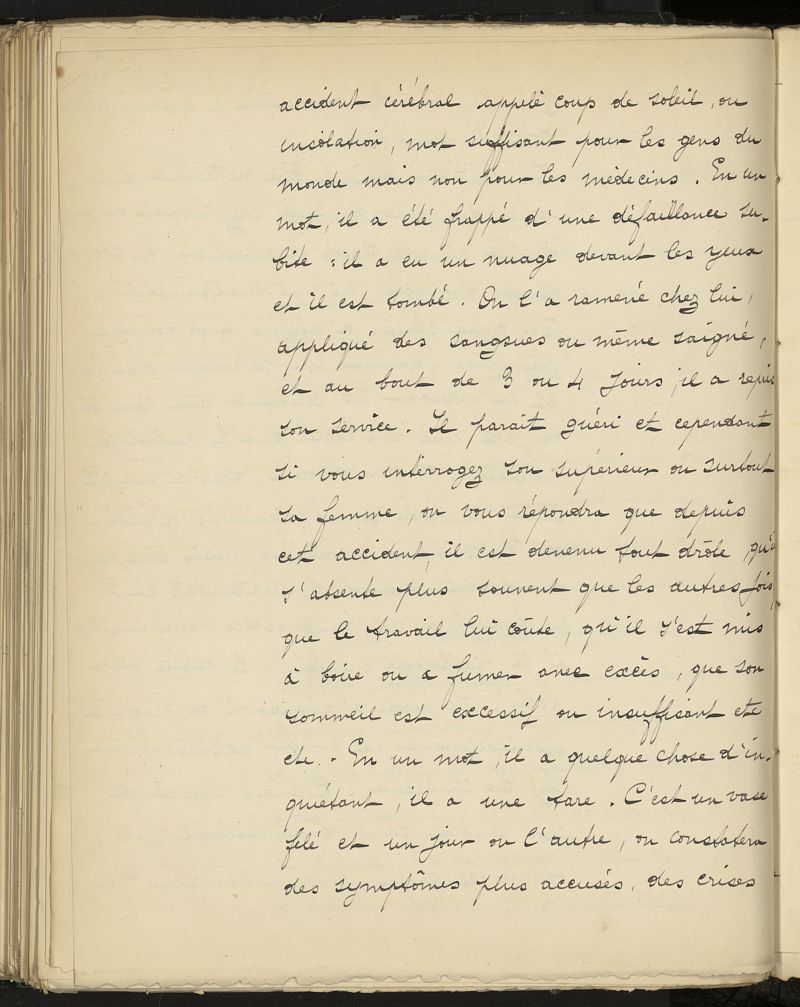 accident cérébral appelé coup de soleil, ou
insolation, mot suffisant pour les gens du
monde mais non pour les médecins. En un
mot, il a été frappé d'une défaillance su-
bite : il a eu un nuage devant les yeux
et il est tombé. On l'a ramené chez lui,
appliqué des sangsues ou même saigné,
et au bout de 3 ou 4 jours, il a repris
son service. Il parait guéri et cependant
si vous interrogez son supérieur ou surtout
sa femme, on vous répondra que depuis
cet accident, il est devenu tout drôle, qu'il
s'absente plus souvent que les autres fois,
que le travail lui coûte, qu'il s'est mis
à boire ou a fumer avec excès, que son
sommeil est excessif ou insuffisant etc
etc. - En un mot, il a quelque chose d'in-
quiétant, il a une tare. C'est un vase
fêlé et un jour ou l'autre, on constatera
des symptômes plus accusés, des crises